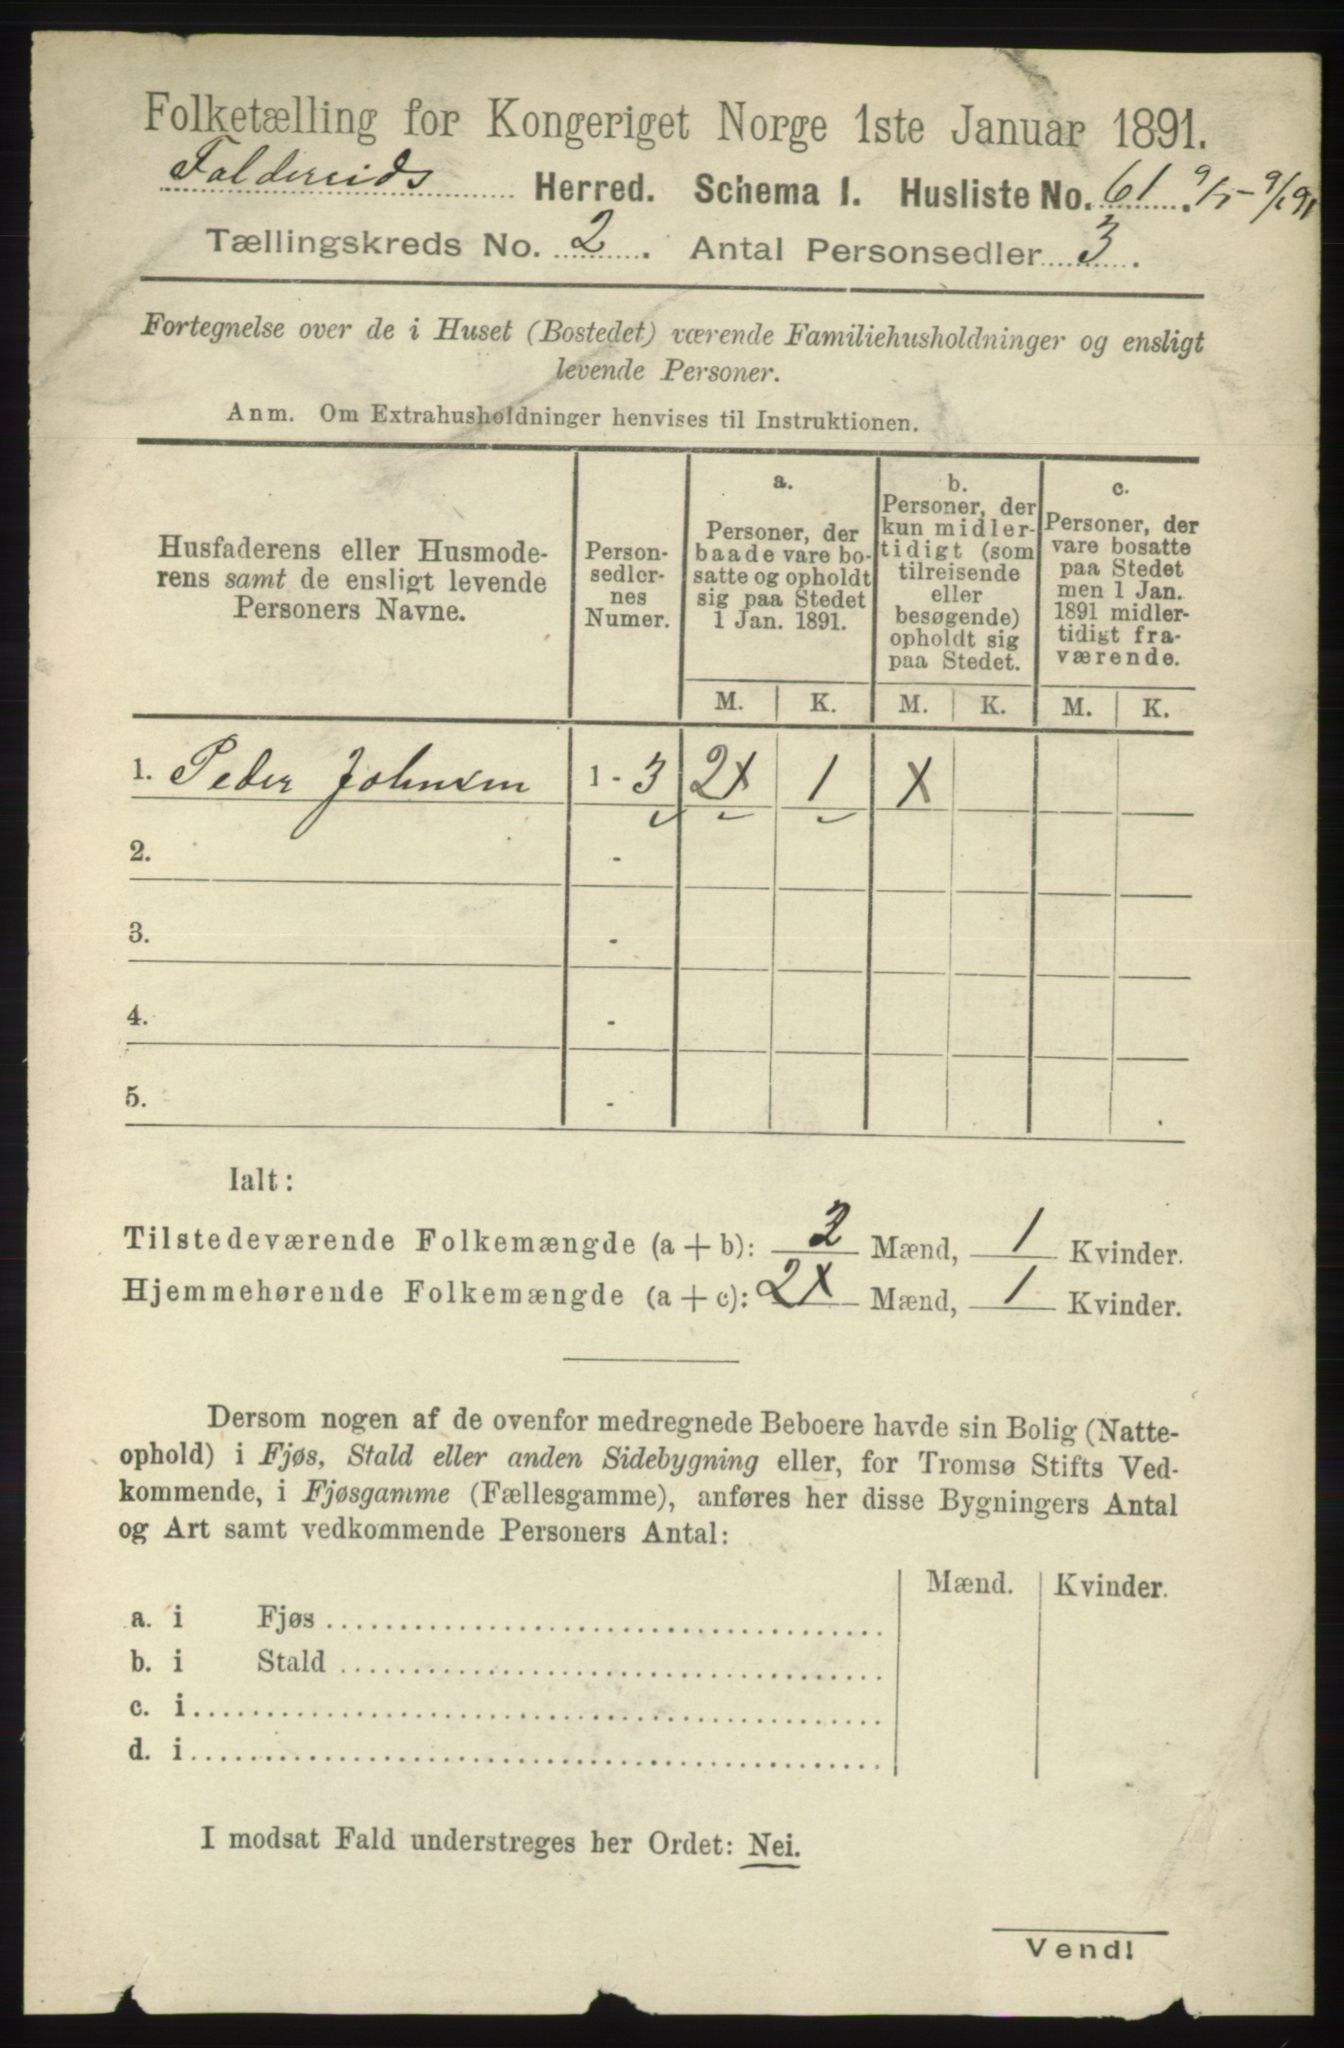 Folketælling for Kongeriget Norge 1ste Januar 1891.
Foldereids Herred. Schema I. Husliste No. 61.
Tællingskreds No. 2. Antal Personsedler 3.
Fortegnelse over de i Huset (Bostedet) værende Familiehusholdninger og ensligt
levende Personer.
Anm. Om Extrahusholdninger henvises til Instruktionen.
Husfaderens eller Husmode-
rens samt de ensligt levende
Personers Navne.
Person-
sedler-
nes
Numer.
a.
Personer, der
baade vare bo-
satte og opholdt
sig paa Stedet
1 Jan. 1891.
b.
Personer, der
kun midler-
tidigt (som
tilreisende
eller
besøgende)
opholdt sig
paa Stedet.
c.
Personer, der
vare bosatte
paa Stedet
men 1 Jan.
1891 midler-
tidigt fra-
værende.
M. K. M. K. M. K.
1. Peder Johnsen 1 - 3 2x 1 x
2. -
3. -
4. -
5. -
Ialt:
Tilstedeværende Folkemængde (a + b): 2 Mænd, 1 Kvinder.
Hjemmehørende Folkemængde (a + c): 2x Mænd, 1 Kvinder.
Dersom nogen af de ovenfor medregnede Beboere havde sin Bolig (Natte-
ophold) i Fjøs, Stald eller anden Sidebygning eller, for Tromsø Stifts Ved-
kommende, i Fjøsgamme (Fællesgamme), anføres her disse Bygningers Antal
og Art samt vedkommende Personers Antal:
Mænd. Kvinder.
a. i Fjøs
b. i Stald
c. i
d. i
I modsat Fald understreges her Ordet: Nei.
Vend!